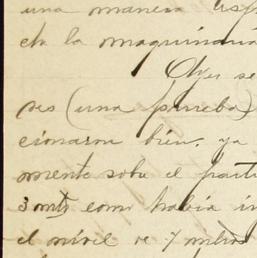 una manera
de la maquinaria
Ayer se
ves (una parueba)
cionaron bien. ya
mente sobre el
3 mts como habia
el nivel de 7 metros